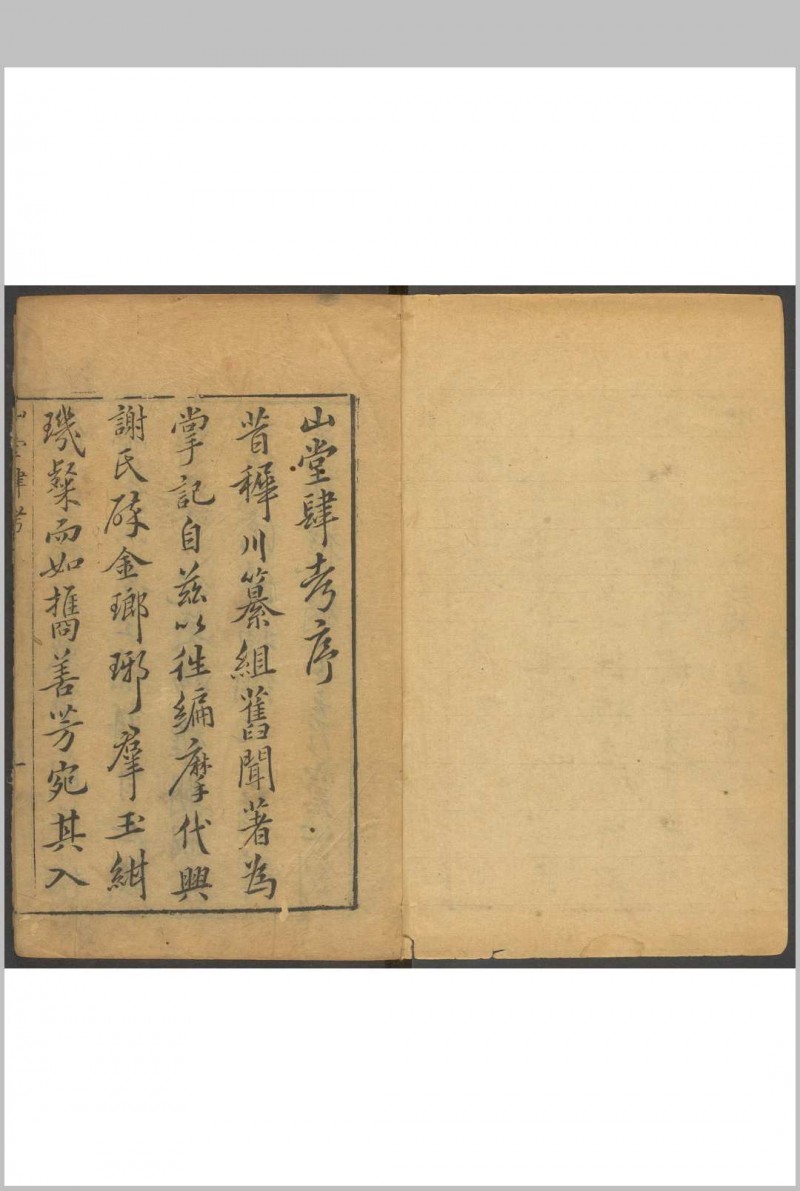 山堂肆考序
昔穉川纂組舊聞著為
掌記自茲以徃編摩代興
謝氏碎金瑯琊羣玉紺
璣粲而如攜善芳宛其入
山堂肆考
一